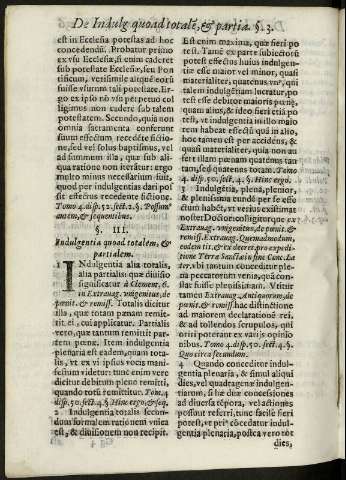 De Indulg. quoad totalē, & partia. §. 3.
est in Ecclesia potestas ad hoc
concedendū. Probatur primo
ex vsu Ecclesiæ, si enim caderet
sub potestate Ecclesiæ, seu Pon
tificum, verisimile aliquē eorū
fuisse vsurum tali potestate. Er-
go ex ipso nō vsu perpetuo col
ligimus non cadere sub talem
potestatem. Secundo, quia non
omnia sacramenta conferunt
suum effectum recedēte fictio-
ne, sed vel solus baptismus, vel
ad summum illa, quæ sub ali-
qua ratione non iterātur: ergo
multo minus necessarium fuit,
quod per indulgentias dari pos
sit effectus recedente fictione.
Tomo 4. disp. 52. sect. 2. §. Possum
autem, & sequentibus.
§. III.
Indulgentia quoad totalem, &
partialem.
INdulgentia alia totalis,
alia partialis: quæ diuisio
significatur à Clement. 6.
in Extrauag. vnigenitus, de
pœnit. & remiss. Totalis dicitur
illa, quæ totam pœnam remit-
tit ei, cui applicatur. Partialis
vero, quæ tantum remittit par-
tem pœnæ. Item indulgentia
plenaria est eadem, quæ tota-
lis, vt ex vi ipsius vocis mani-
festum videtur: tunc enim vere
dicitur debitum pleno remitti,
quando totū remittitur. Tom. 4
disp. 50. sect. 4. § Hinc ergo, & seq.
2 Indulgentia totalis secun-
dum formalem rationem vnica
est, & diuisionem non recipit.
Est enim maxima, quæ fieri po
test. Tamē ex parte subiectorū
potest effectus huius indulgen-
tiæ esse maior vel minor, quasi
materialiter, quatenus vn9, qui
talem indulgētiam lucratur, po
test esse debitor maioris pœnæ,
quam alius, & ideo fieri etiā po
test, vt indulgentia in illo maio
rem habeat effectū quā in alio,
hoc tamen est per accidens, &
quasi materialiter, quia non au
fert illam pœnam quatenus tan
tam, sed quatenus totam. Tomo
4. disp. 50. sect. 4. §. Hinc ergo.
3 Indulgētia, plena, plenior,
& plenissima eundē fere effectū
habēt, vt verius existimat
noster Doctor: colligiturque ex
Extrauag. vnigenitus, de pœnit. &
remiss. Extrauag. Quemadmodum,
eodem tit. & ex decret. pro expedi
tione Terræ Sanctæ in fine Conc. La
ter. vbi tantum conceditur ple-
na peccatorum venia, quæ con-
stat fuisse plenissimam. Vtitur
tamen Extrauag. Antiquorum, de
pœnit. & remiss. hac distinctione
ad maiorem declarationē rei,
& ad tollendos scrupulos, qui
oriri poterant ex varijs opinio
nibus. Tomo 4. disp. 50. sect. 4. §.
Quo circa secundum.
4 Quando conceditur indul
gentia plenaria, & simul aliqui
dies, vel quadragenæ indulgen-
tiarum, si hæ duæ concessiones
ad diuersa tēpora, vel actiones
possunt referri, tunc facile fieri
potest, vt pri9 cōcedatur indul
gentia plenaria, postea vero tot
dies,